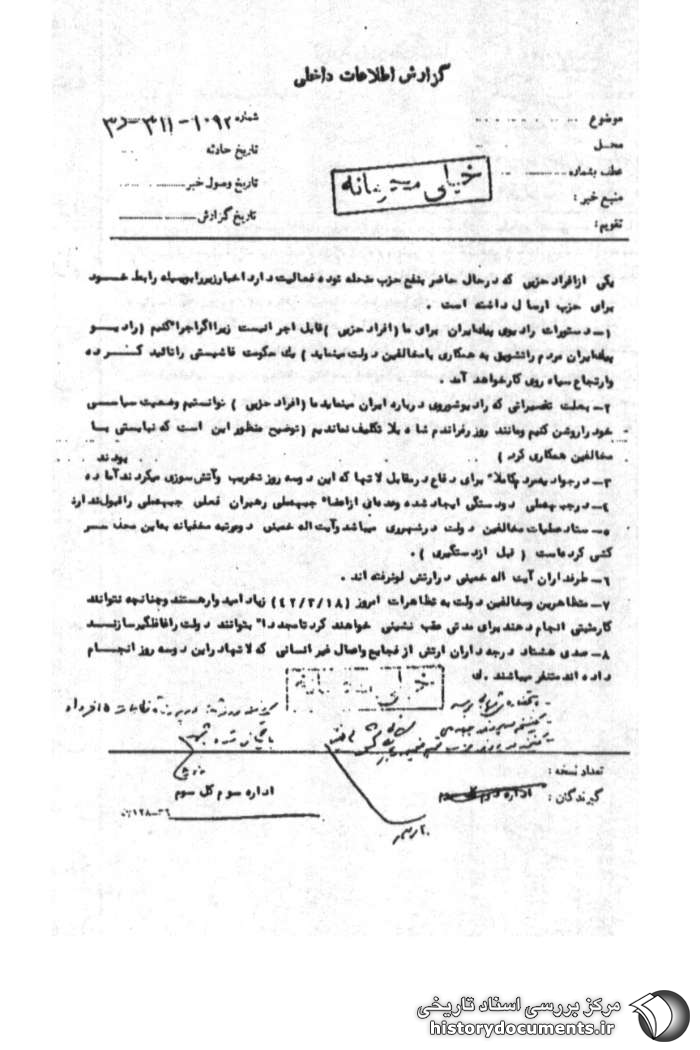 گزارش اطلاعات داخلی
موضوع
محل
عطف بشماره
منبع خبر :
تقویم :
شماره ۱۰۹۲-۳۱۱
تاریخ حادثه
تاریخ وصول خبر
تاریخ گزارش
خیلی محرمانه
یکی ازافراد حزبی که درحال حاضر بنفع حزب منحله توده فعالیت دارد اخبارزیررابوسیله رابط خود
برای حزب ارسال داشته است .
۱- دستورات رادیوی پیک‌ایران برای ما ( افراد حزبی ) قابل اجرانیست زیرااگراجراکنیم ( رادیو
پیک‌ایران مردم راتشویق به همکاری بامخالفین دولت مینماید ) یک حکومت فاشیستی راتائید کرده
وارتجاع سیاه روی کارخواهد آمد .
۲- بعلت تفسیراتی که رادیوشوروی درباره ایران مینماید ما ( افراد حزبی ) نتوانستیم وضعیت سیاسی
خودراروشن کنیم ومانند روز رفراندم شاه بلا تکلیف ماندیم ( توضیح منظوراین است که نبایستی با
مخالفین همکاری کرد )
بودند
۳- درجواد یه مردم کاملا" برای دفاع درمقابل لاتها که این دوسه روز تخریب وآتش‌سوزی میکردند آماده
۴- درجبهه‌ملی دودستگی ایجاد شده وعده‌ای ازاعضا" جبهه‌ملی رهبران فعلی جبهه‌ملی راقبول‌ندارند
۵- ستاد عملیات مخالفین دولت درشهرری میباشد وآیت اله خمینی دومرتبه مخفیانه به‌این محل سر
کشی کرده‌است ( قبل ازدستگیری ) .
۶- طرفداران آیت اله خمینی درارتش لونرفته اند .
۷- متظاهرین ومخالفین دولت به تظاهرات امروز (۴۲/۳/۱۸) زیاد امید وارهستند وچنانچه نتوانند
کارمثبتی انجام دهند برای مدتی عقب نشینی خواهند کرد تامجددا" بتوانند دولت راغافلگیرسازند
۸- صدی هشتاد درجه داران ارتش از فجایع واعمال غیر انسانی که لاتهاد راین دوسه روز انجام
داده اند متنفر میباشند .
خیلی محرمانه
تعداد نسخه :
گیرندگان :
اداره دوم کل سوم
اداره سوم کل سوم
مرکز بررسی اسناد تاریخی
historydocuments.ir